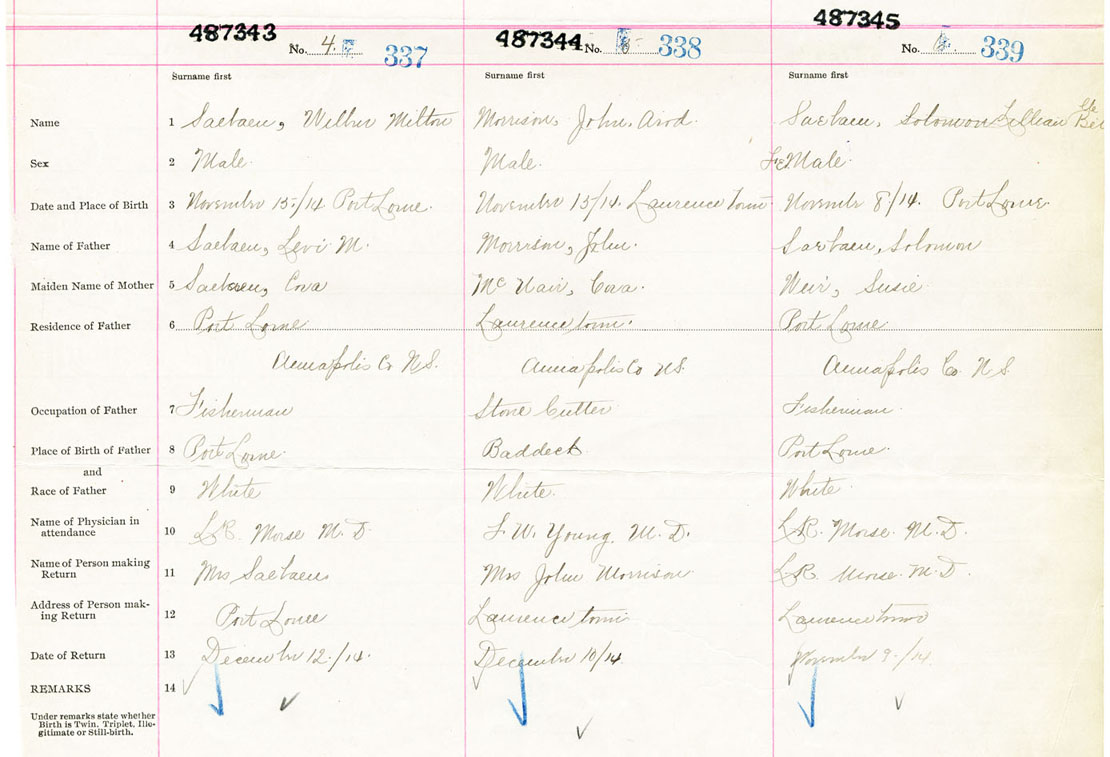 487343 487344 487345
No. 4. 337 No. 338 No. 339
Surname first Surname first Surname first
Name 1 Saebaen, Wilbur Milton Morrison, John. Arod. Saebaen, Solomon Lillean
Sex 2 Male. Male. FeMale.
Date and Place of Birth 3 November 15/14 Port Lorne. November 15/14. Laurence Town November 8/14. Port Lorne.
Name of Father 4 Saebaen, Levi M. Morrison, John. Saebaen, Solomon
Maiden Name of Mother 5 Saebaen, Cora McNair, Cora. Weir, Susie.
Residence of Father 6 Port Lorne Laurence town. Port Lorne
Annapolis Co N.S. Annapolis Co N.S. Annapolis Co. N.S.
Occupation of Father 7 Fisherman Stone Cutter Fisherman.
Place of Birth of Father 8 Port Lorne. Baddeck Port Lorne.
and
Race of Father 9 White White. White.
Name of Physician in
attendance 10 L.R. Morse M.D. F. W. Young. M.D. L.R. Morse. M.D.
Name of Person making
Return 11 Mrs Saebaen Mrs John Morrison L.R. Morse. M.D.
Address of Person mak-
ing Return 12 Port Lorne Laurence town Laurencetown
Date of Return 13 December 12./14. December 10/14 November 9./14.
REMARKS 14
Under remarks state whether
Birth is Twin, Triplet, Ille-
gitimate or Still-birth.